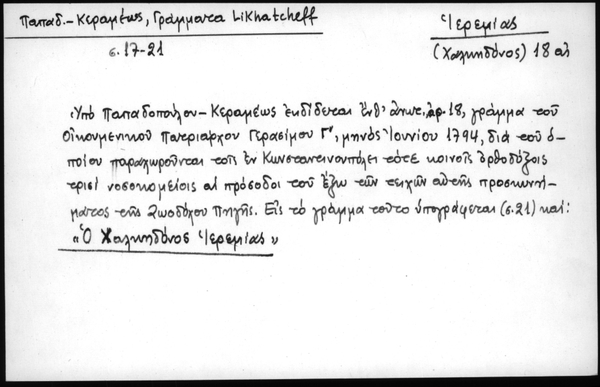 Παπαδ.-Κεραμέως, Γράμματα Likhatcheff
σ. 17-21
Ἱερεμίας
(Χαλκηδόνος) 18 αἰ
Ὑπὸ Παπαδοπούλου-Κεραμέως ἐκδίδεται ἔνθ' ἀνωτ. ἀρ. 18, γράμμα τοῦ
Οἰκουμενικοῦ Πατριάρχου Γερασίμου Γ', μηνὸς Ἰουνίου 1794, διὰ τοῦ ὁ-
ποίου παραχωροῦνται τοῖς ἐν Κωνσταντινουπόλει τότε κοινοῖς ὀρθοδόξοις
τρισὶ νοσοκομείοις αἱ πρόσοδοι τοῦ ἔξω τῶν τειχῶν αὐτῆς προσκυνή-
ματος τῆς Ζωοδόχου Πηγῆς. Εἰς τὸ γράμμα τοῦτο ὑπογράφεται (σ. 21) καὶ:
«Ὁ Χαλκηδόνος Ἱερεμίας»